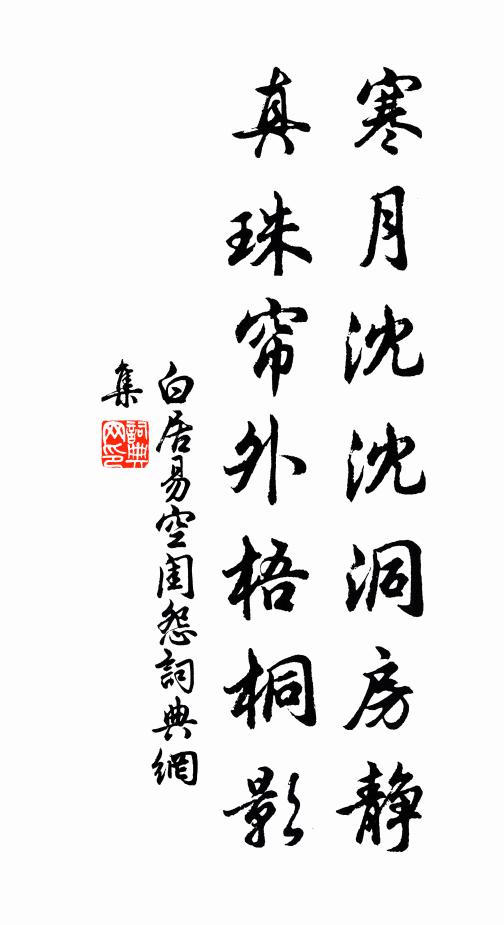 寒月沈沈洞房静
真珠帘外梧桐影
白居易空闺怨詞典網
集
詞典网印